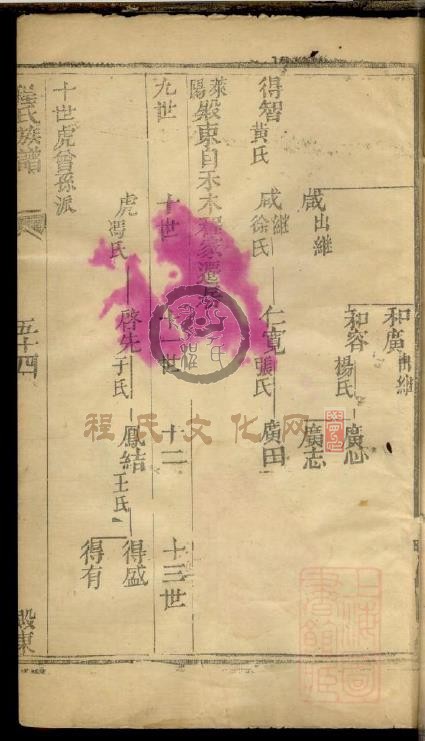 和廣出繼
和容楊氏 廣志
咸出繼 廣志
得智黃氏 咸繼徐氏 仁寬張氏 廣田
萊陽殿東自禾木程家
九世 十世 十一世 十二 十三世
虎馮氏 啓先于氏 鳳結王氏 得盛
得有
十世虎曾孫派
程氏族譜 五十四 殿東
程氏文化网
上海圖書館藏